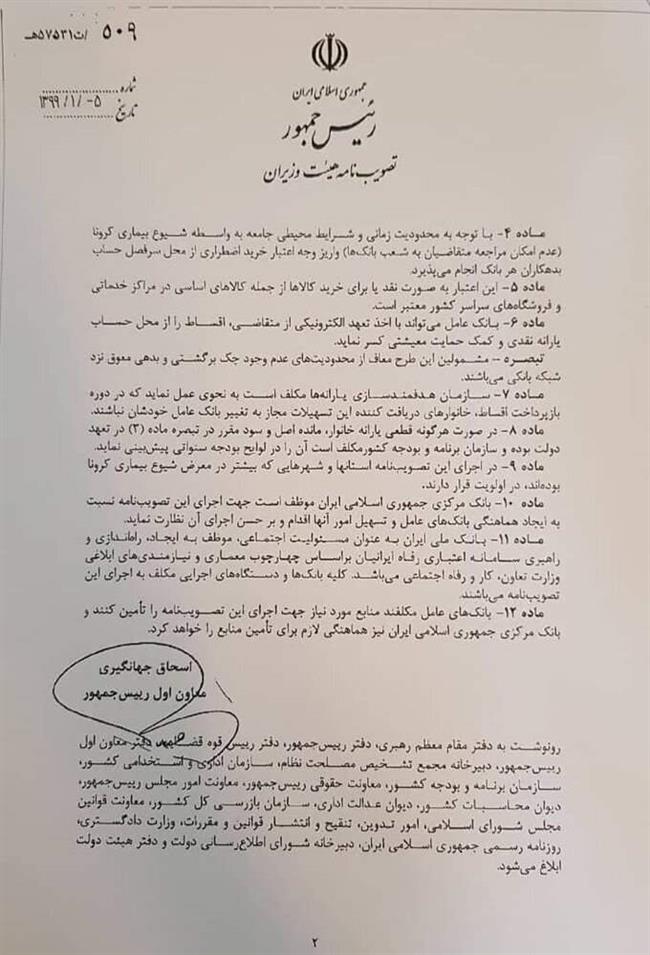 ۵۰۹ /ت۵۷۵۳۱هـ
شماره
تاریخ ۱۳۹۹/۱/-۵
جمهوری اسلامی ایران
رئیس جمهور
تصویب نامه هیئت وزیران
ماده ۴- با توجه به محدودیت زمانی و شرایط محیطی جامعه به واسطه شیوع بیماری کرونا
(عدم امکان مراجعه متقاضیان به شعب بانک‌ها) واریز وجه اعتبار خرید اضطراری از محل سرفصل حساب
بدهکاران هر بانک انجام می‌پذیرد.
ماده ۵- این اعتبار به صورت نقد یا برای خرید کالاها از جمله کالاهای اساسی در مراکز خدماتی
و فروشگاه‌های سراسر کشور معتبر است.
ماده ۶- بانک عامل می‌تواند با اخذ تعهد الکترونیکی از متقاضی، اقساط را از محل حساب
یارانه نقدی و کمک حمایت معیشتی کسر نماید.
تبصره - مشمولین این طرح معاف از محدودیت‌های عدم وجود چک برگشتی و بدهی معوق نزد
شبکه بانکی می‌باشند.
ماده ۷- سازمان هدفمندسازی یارانه‌ها مکلف است به نحوی عمل نماید که در دوره
بازپرداخت اقساط، خانوارهای دریافت کننده این تسهیلات مجاز به تغییر بانک عامل خودشان نباشند.
ماده ۸- در صورت هرگونه قطعی یارانه خانوار، مانده اصل و سود مقرر در تبصره ماده (۳) در تعهد
دولت بوده و سازمان برنامه و بودجه کشورمکلف است آن را در لوایح بودجه سنواتی پیش‌بینی نماید.
ماده ۹- در اجرای این تصویب‌نامه استانها و شهرهایی که بیشتر در معرض شیوع بیماری کرونا
بوده‌اند، در اولویت قرار دارند.
ماده ۱۰- بانک مرکزی جمهوری اسلامی ایران موظف است جهت اجرای این تصویب‌نامه نسبت
به ایجاد هماهنگی بانک‌های عامل و تسهیل امور آنها اقدام و بر حسن اجرای آن نظارت نماید.
ماده ۱۱- بانک ملی ایران به عنوان مسئولیت اجتماعی، موظف به ایجاد، راه‌اندازی و
راهبری سامانه اعتباری رفاه ایرانیان براساس چهارچوب معماری و نیازمندی‌های ابلاغی
وزارت تعاون، کار و رفاه اجتماعی می‌باشد. کلیه بانک‌ها و دستگاه‌های اجرایی مکلف به اجرای این
تصویب‌نامه می‌باشند.
ماده ۱۲- بانک‌های عامل مکلفند منابع مورد نیاز جهت اجرای این تصویب‌نامه را تأمین کنند و
بانک مرکزی جمهوری اسلامی ایران نیز هماهنگی لازم برای تأمین منابع را خواهد کرد.
اسحاق جهانگیری
معاون اول رییس‌جمهور
رونوشت به دفتر مقام معظم رهبری، دفتر رییس‌جمهور، دفتر رییس قوه دفتر معاون اول
رییس‌جمهور، دبیرخانه مجمع تشخیص مصلحت نظام، سازمان اداری و استخدامی کشور،
سازمان برنامه و بودجه کشور، معاونت حقوقی رییس‌جمهور، معاونت امور مجلس رییس‌جمهور،
دیوان محاسبات کشور، دیوان عدالت اداری، سازمان بازرسی کل کشور، معاونت قوانین
مجلس شورای اسلامی، امور تدوین، تنقیح و انتشار قوانین و مقررات، وزارت دادگستری،
روزنامه رسمی جمهوری اسلامی ایران، دبیرخانه شورای اطلاع‌رسانی دولت و دفتر هیئت دولت
ابلاغ می‌شود.
۲